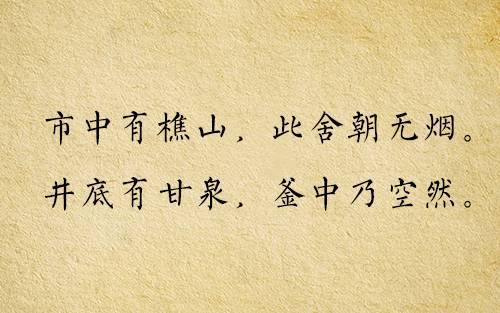 市中有樵山，此舍朝无烟。
井底有甘泉，釜中乃空然。